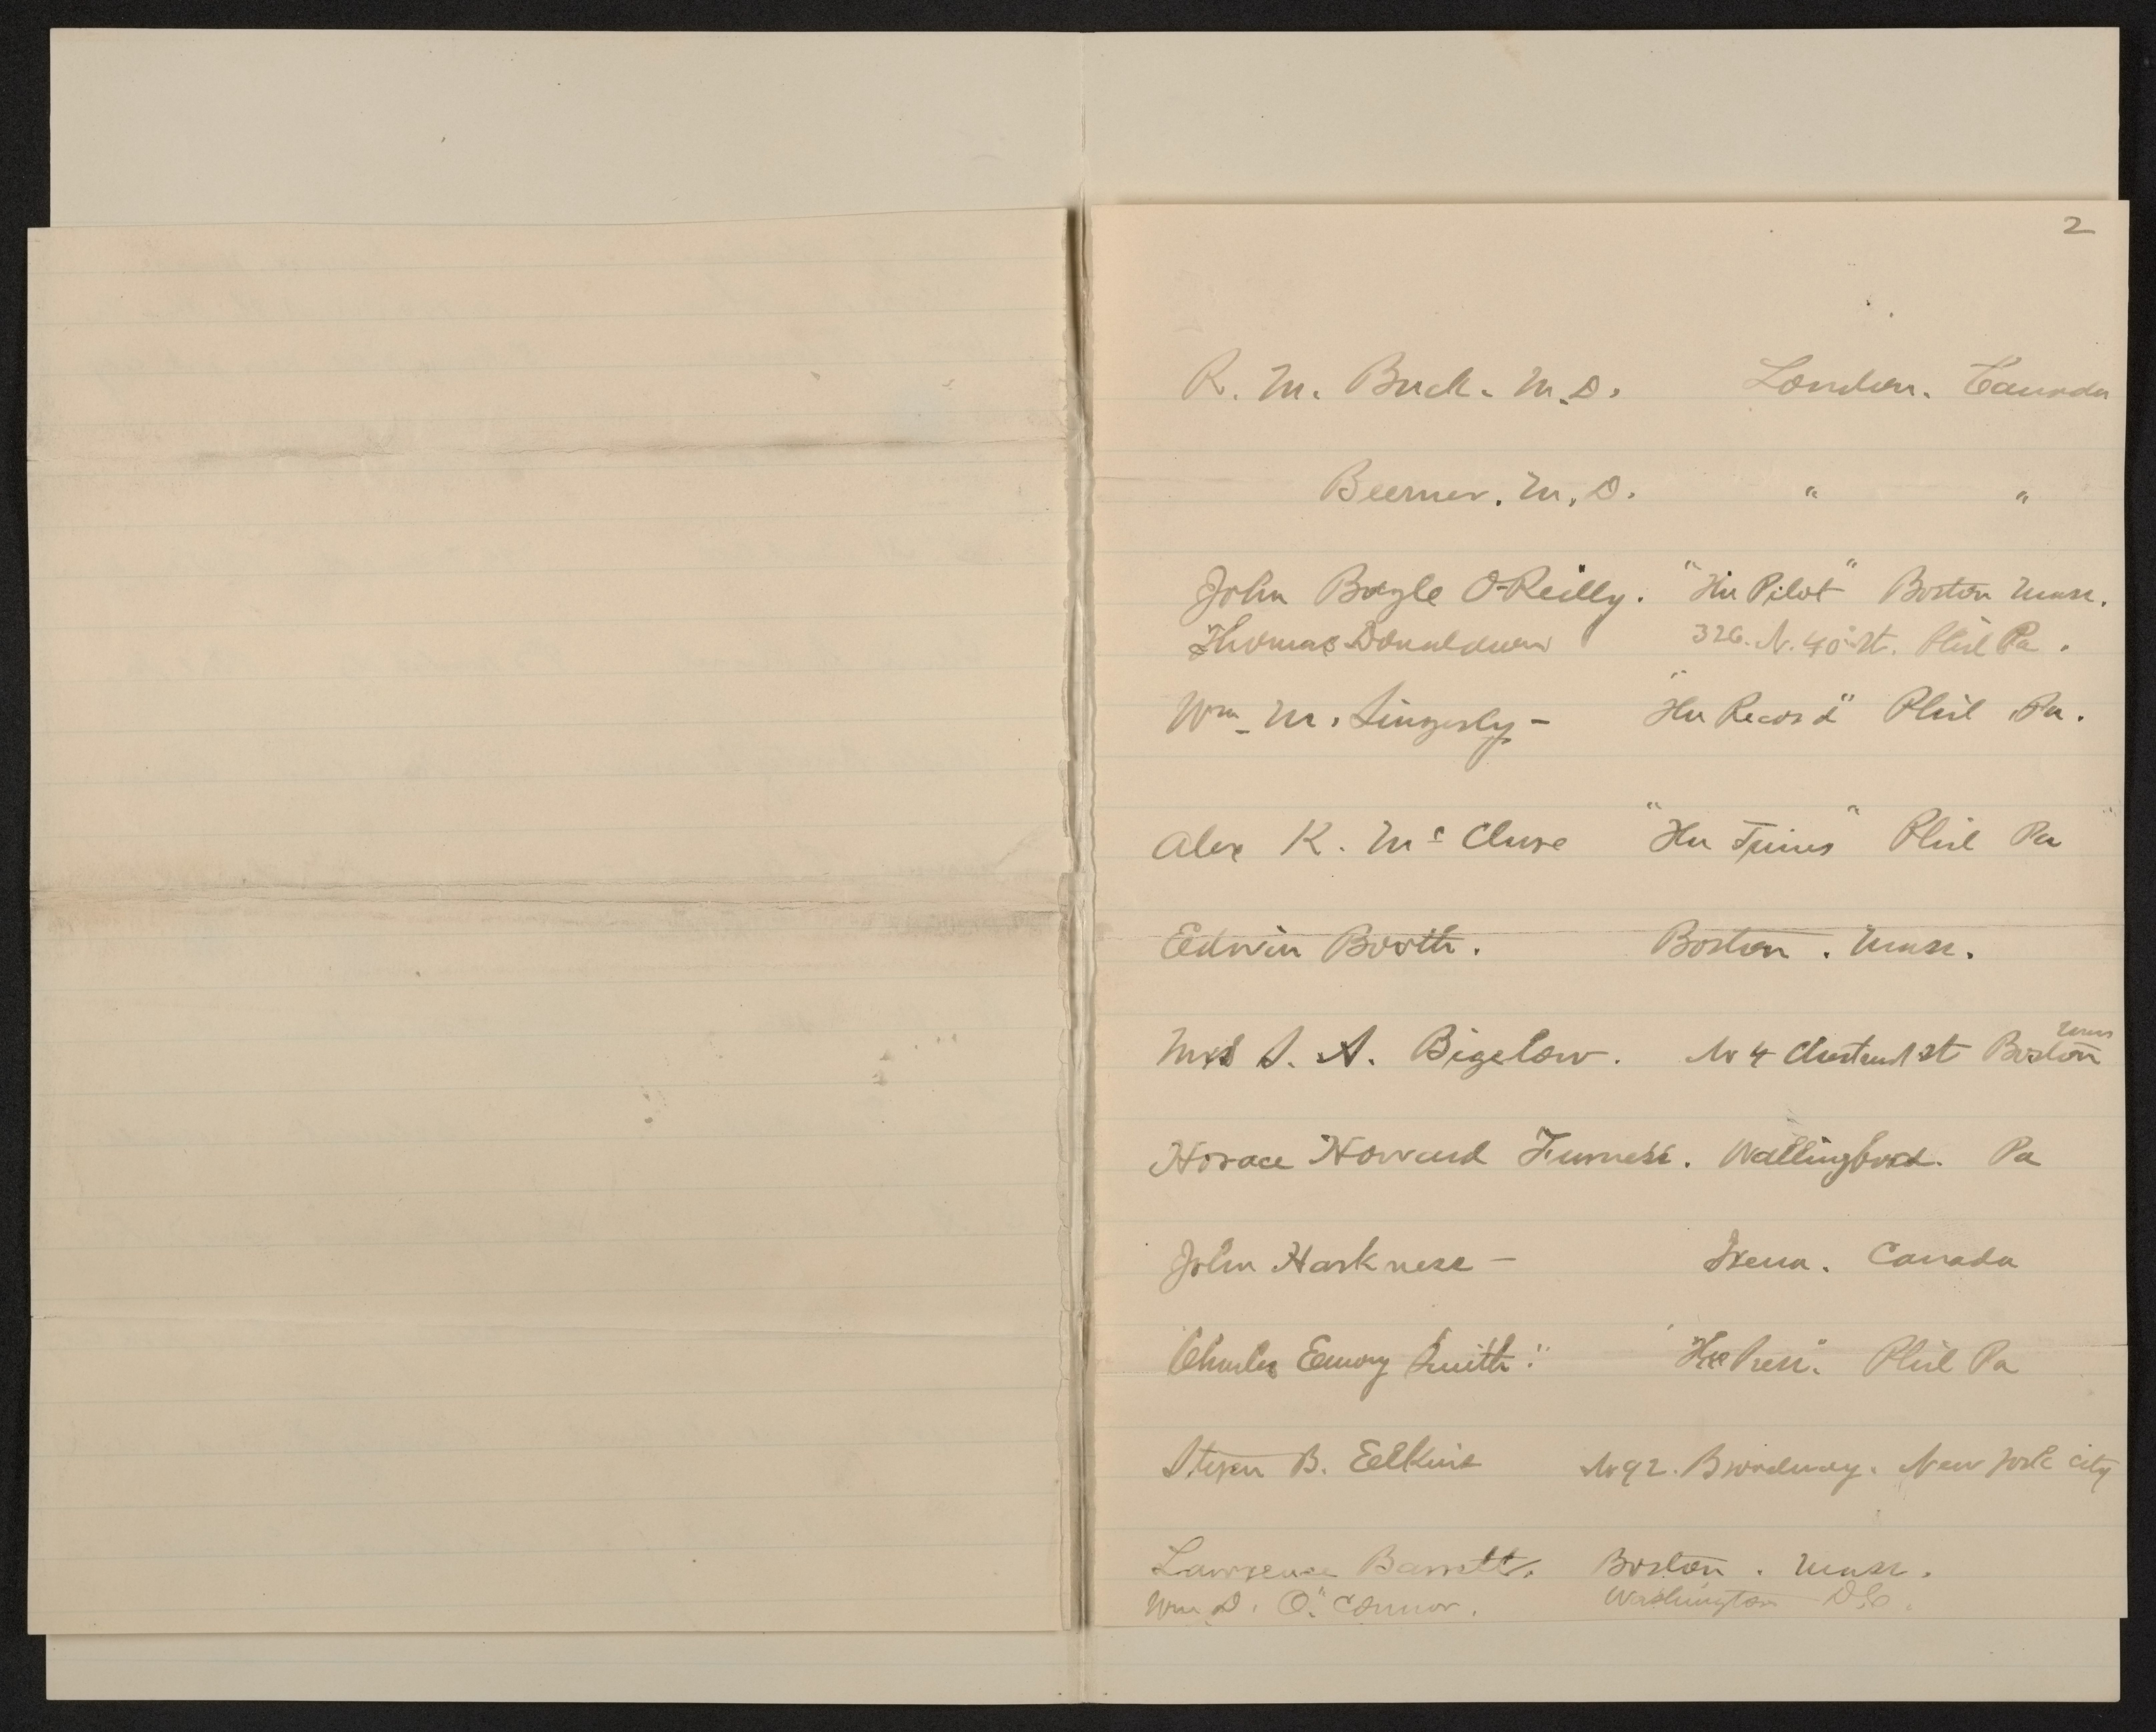 2
R. M. Buck. M.D. London. Canada
Beemer. M.D. " "
John Boyle O'Reilly. "The Pilot" Boston Mass.
Thomas Donaldson 326. N. 40th St. Phil Pa.
Wm M. Singerly - "The Record" Phil Pa.
Alex K. McClure "The Times" Phil Pa
Edwin Booth. Boston. Mass.
Mrs S. A. Bigelow. No 4 Chestnut St Boston Mass
Horace Howard Furness. Wallingford. Pa
John Harkness - Irena. Canada
Charles Emory Smith. "The Press". Phil Pa
Stepen B. Eelkins No 92. Broadway. New York City
Lawrence Barrett. Boston. Mass.
Wm D. O'Connor. Washington D.C.